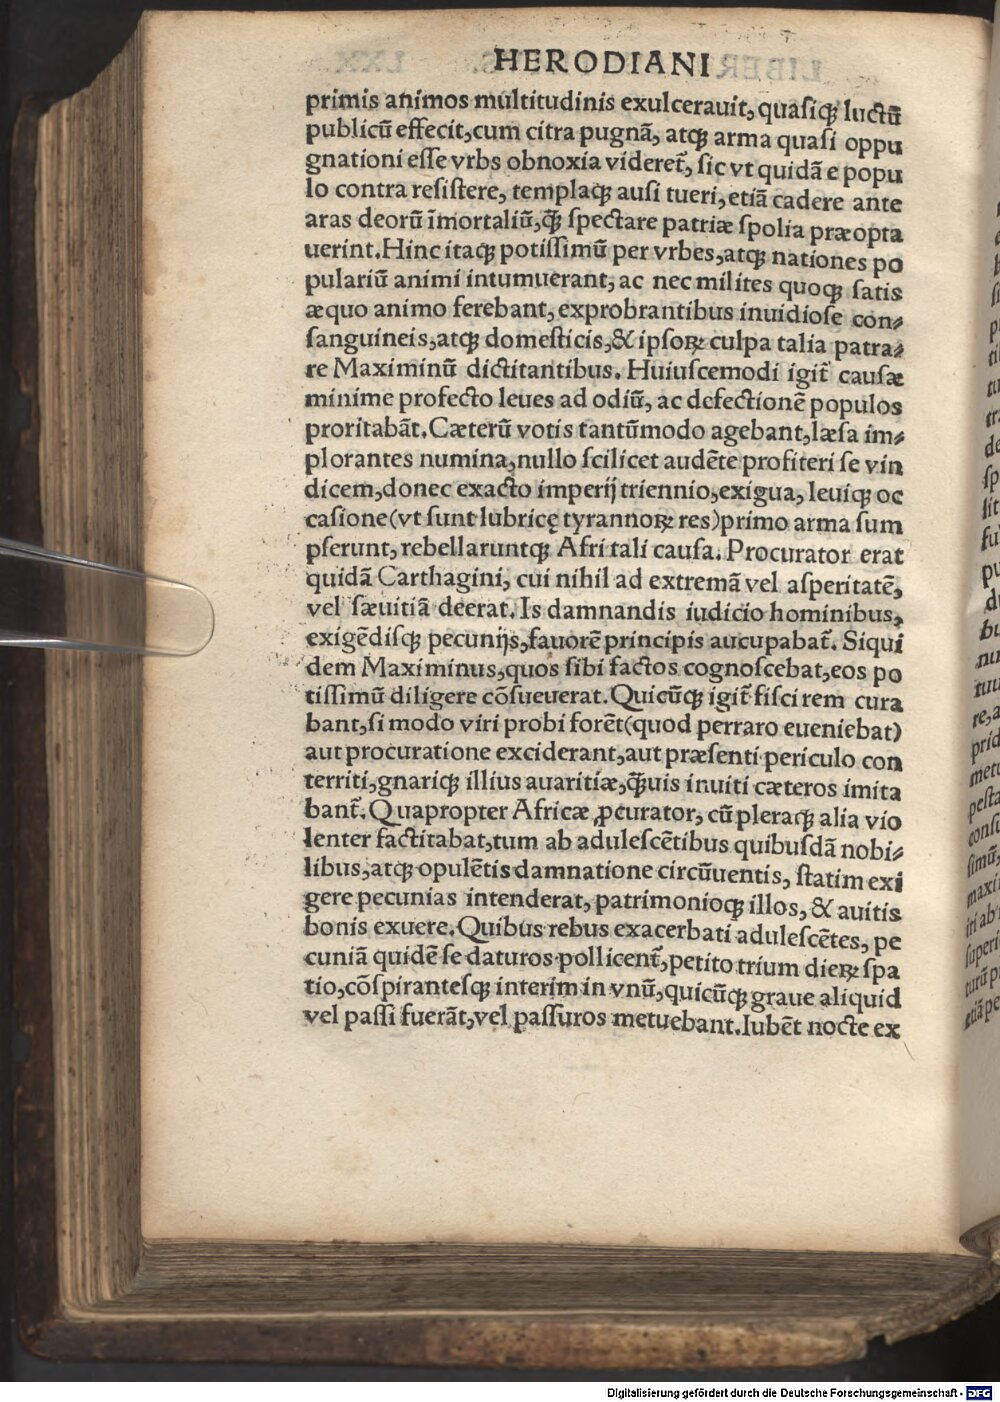 HERODIANI
primis animos multitudinis exulcerauit, quasiqꝫ luctũ
publicũ effecit, cum citra pugnã, atqꝫ arma quasi oppu
gnationi esse vrbs obnoxia videret̃, sic vt quidã e popu
lo contra resistere, templaqꝫ ausi tueri, etiã cadere ante
aras deorũ ĩmortaliũ, q̃ꝫ spectare patriæ spolia præopta
uerint. Hinc itaqꝫ potissimũ per vrbes, atqꝫ nationes po
pulariũ animi intumuerant, ac nec milites quoqꝫ satis
æquo animo ferebant, exprobrantibus inuidiose con⸗
sanguineis, atqꝫ domesticis, & ipsoꝝ culpa talia patra⸗
re Maximinũ dictitantibus. Huiuscemodi igit̃ causæ
minime profecto leues ad odiũ, ac defectionẽ populos
proritabãt. Cæterũ votis tantũmodo agebant, læsa im⸗
plorantes numina, nullo scilicet audẽte profiteri se vin
dicem, donec exacto imperij triennio, exigua, leuiqꝫ oc
casione (vt sunt lubricę tyrannoꝝ res) primo arma sum
pserunt, rebellaruntqꝫ Afri tali causa. Procurator erat
quidã Carthagini, cui nihil ad extremã vel asperitatẽ,
vel sæuitiã deerat. Is damnandis iudicio hominibus,
exigẽdisqꝫ pecunijs, fauorẽ principis aucupabat̃. Siqui
dem Maximinus, quos sibi factos cognoscebat, eos po
tissimũ diligere cõsueuerat. Quicũqꝫ igit̃ fisci rem cura
bant, si modo viri probi forẽt (quod perraro eueniebat)
aut procuratione exciderant, aut præsenti periculo con
territi, gnariqꝫ illius auaritiæ, q̃ꝫuis inuiti cæteros imita
bant̃. Quapropter Africæ ꝓcurator, cũ pleraqꝫ alia vio
lenter factitabat, tum ab adulescẽtibus quibusdã nobi⸗
libus, atqꝫ opulẽtis damnatione circũuentis, statim exi
gere pecunias intenderat, patrimonioqꝫ illos, & auitis
bonis exuere. Quibus rebus exacerbati adulescẽtes, pe
cuniã quidẽ se daturos pollicent̃, petito trium dieꝝ spa
tio, cõspirantesqꝫ interim in vnũ, quicũqꝫ graue aliquid
vel passi fuerãt, vel passuros metuebant. Iubẽt nocte ex
Digitalisierung gefördert durch die Deutsche Forschungsgemeinschaft - DFG